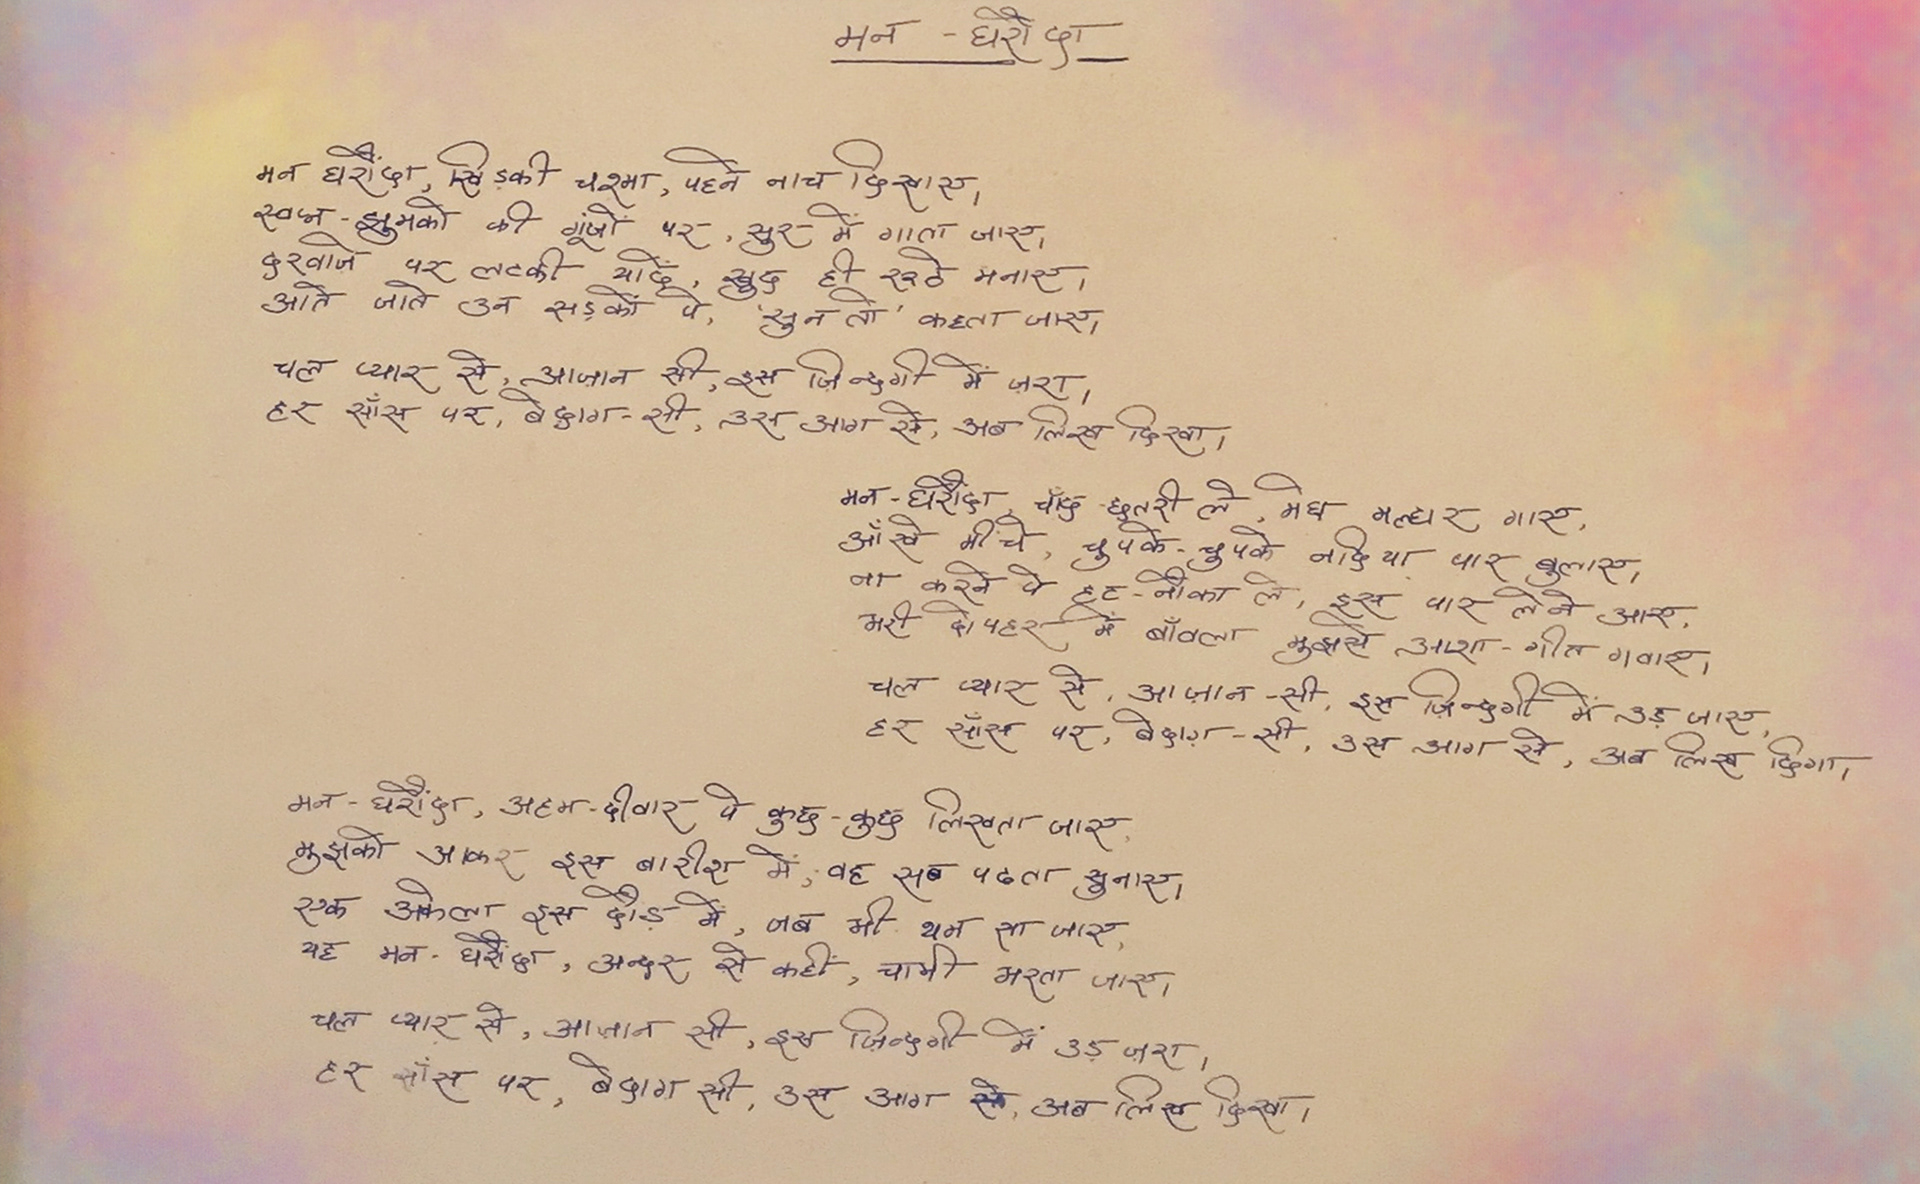 मन - घरौंदा
मन घरौंदा, खिड़की चश्मा, पहने नाच दिखाए,
स्वप्न - झुमको की गूंजों पर, सुर में गाता जाए,
दरवाजे पर लटकी यादें, खुद ही रूठे मनाए,
आते जाते उन सड़कों पे, 'सुन तो' कहता जाए,
चल प्यार से, आज़ान सी, इस ज़िन्दगी में ज़रा,
हर साँस पर, बेदाग - सी, उस आग से, अब लिख दिखा,
मन - घरौंदा, चाँद - छतरी ले, मेघ मल्हार गाए,
आँखे मींचे, चुपके - चुपके नदिया पार बुलाए,
ना करने पे हट - नौका ले, इस पार लेने आए,
भरी दोपहर में बाँवला मुझसे आशा - गीत गवाए,
चल प्यार से, आज़ान - सी, इस ज़िन्दगी में उड़ जाए,
हर साँस पर, बेदाग़ - सी, उस आग से, अब लिख दिगा,
मन - घरौंदा, अहम - दीवार पे कुछ - कुछ लिखता जाए,
मुझको आकर इस बारीश में, वह सब पढता सुनाए,
एक अकेला इस दौड़ में, जब भी थम सा जाए,
यह मन - घरौंदा, अन्दर से कहीं, चाभी भरता जाए,
चल प्यार से, आज़ान सी, इस ज़िन्दगी में उड़ ज़रा,
हर साँस पर, बेदाग सी, उस आग से, अब लिख दिखा,